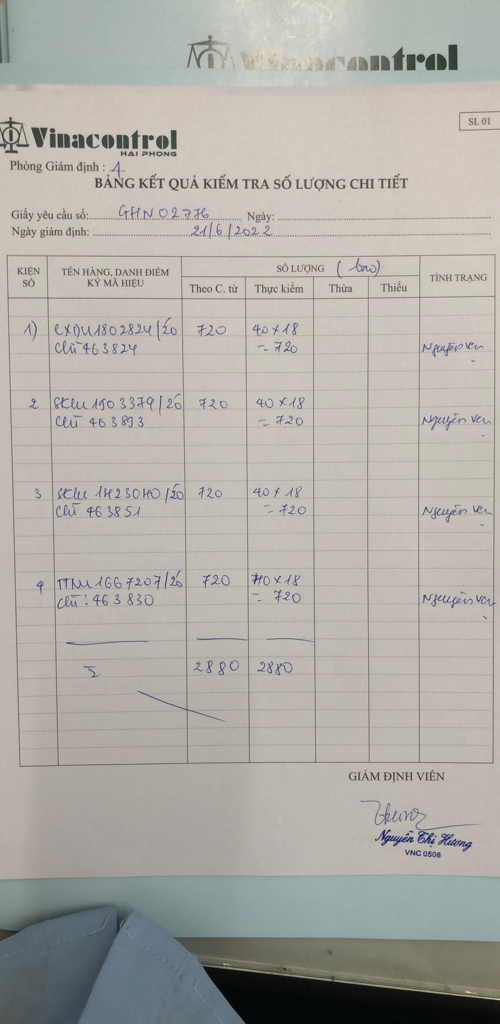 Vinacontrol
SL 01
Vinacontrol
HAI PHONG
Phòng Giám định : 1
BẢNG KẾT QUẢ KIỂM TRA SỐ LƯỢNG CHI TIẾT
Giấy yêu cầu số: GHN 02776 Ngày:
Ngày giám định: 21/6/2022
KIỆN SỐ
TÊN HÀNG, DANH ĐIỂM
KÝ MÃ HIỆU
SỐ LƯỢNG (bao)
TÌNH TRẠNG
Theo C. từ Thực kiểm Thừa Thiếu
1) CXDU1802824/20 720 40×18
Chì 463824 = 720 Nguyên vẹn
2 SKLU 1503379/20 720 40×18
Chì 463893 = 720 Nguyên vẹn
3 SKLU 1423040/20 720 40×18
Chì 463851 = 720 Nguyên vẹn
4 TTNU1667207/20 720 40×18
Chì: 463830 = 720 Nguyên vẹn
Σ 2880 2880
GIÁM ĐỊNH VIÊN
Nguyễn Thị Hương
VNC 0508